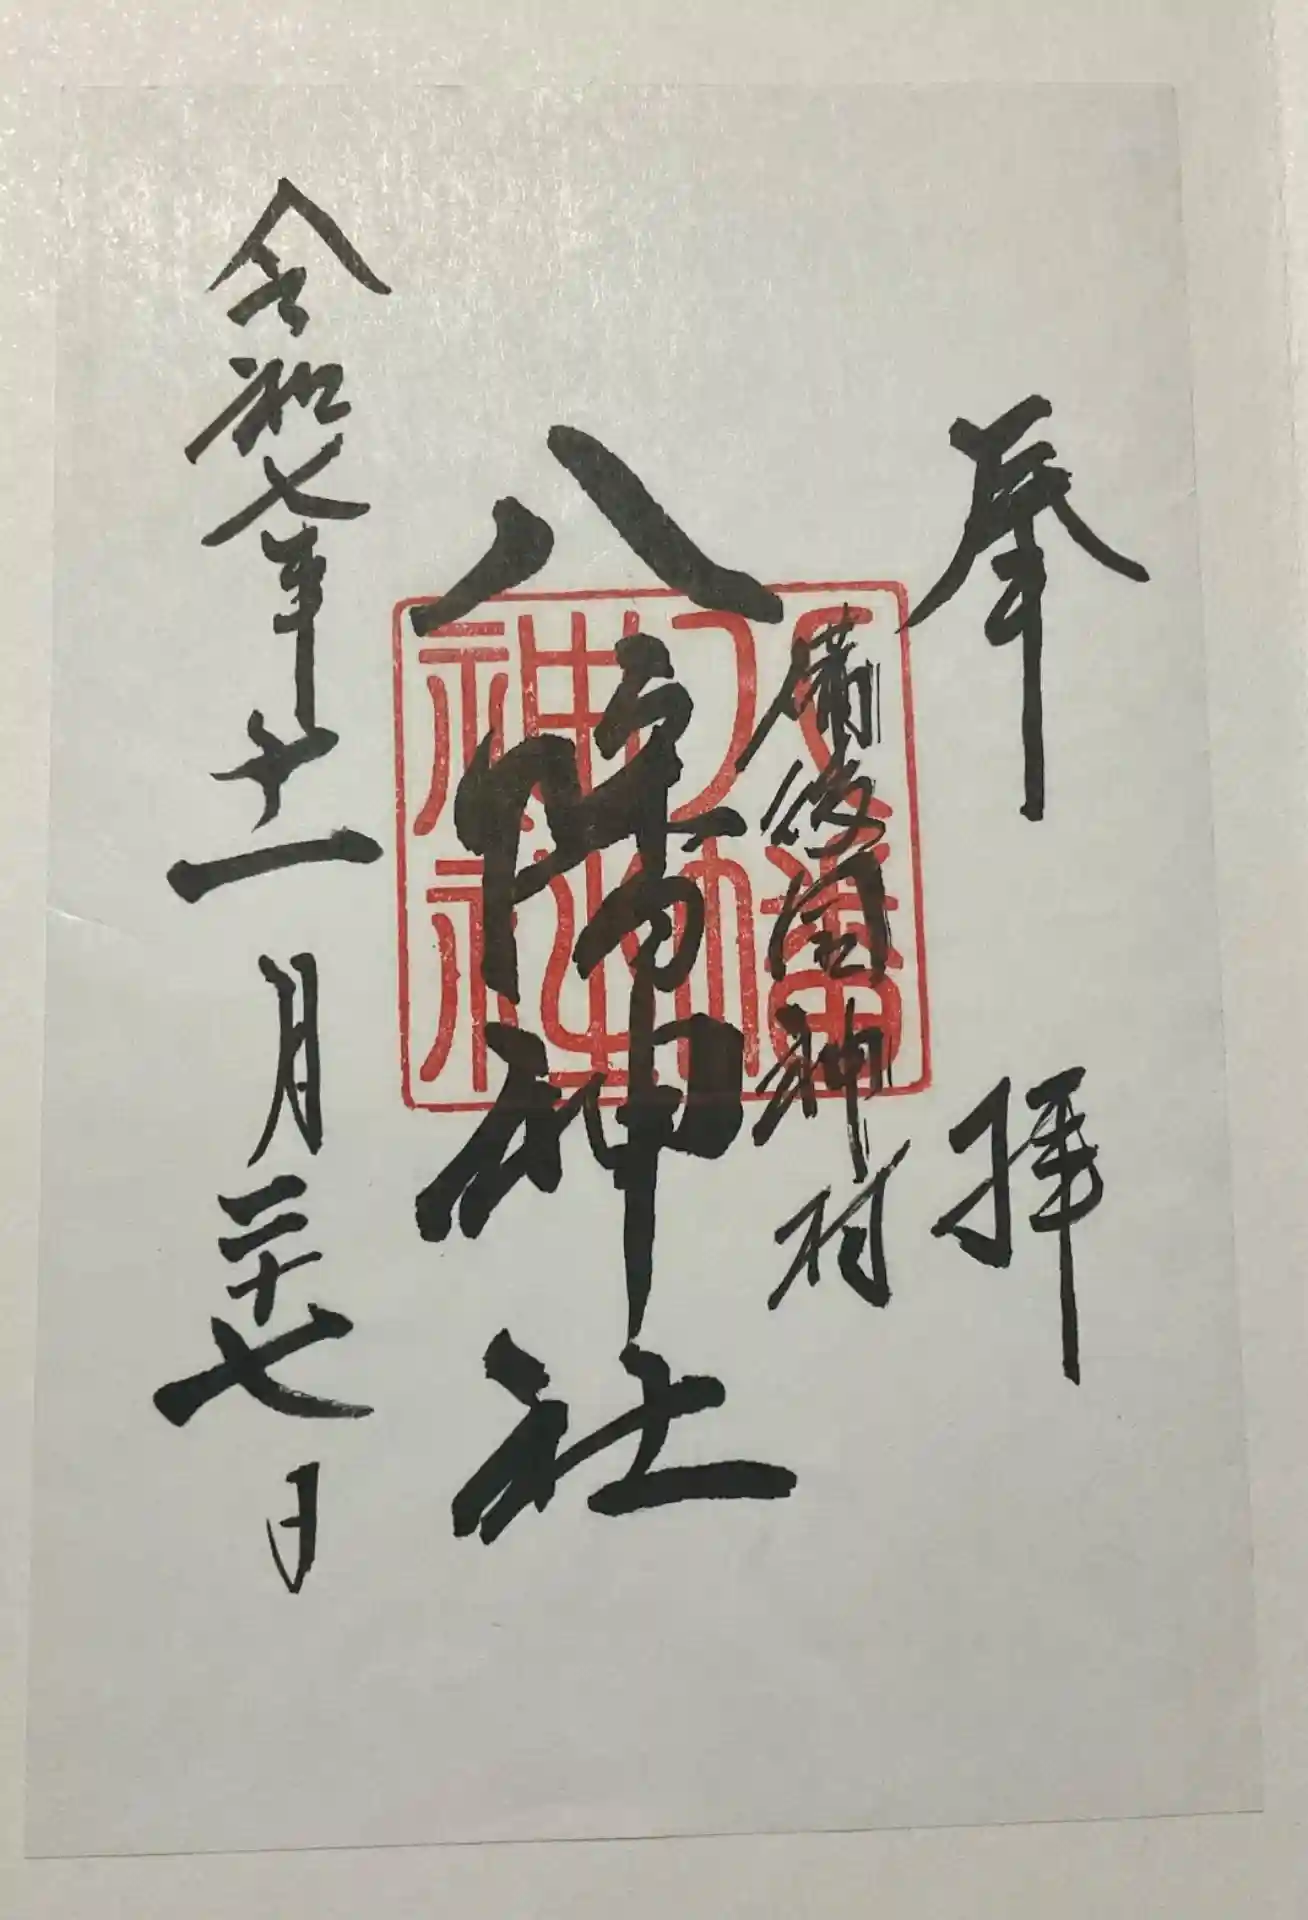 奉拝
備後国神村
八幡神社
八幡神社
令和七年十一月二十七日